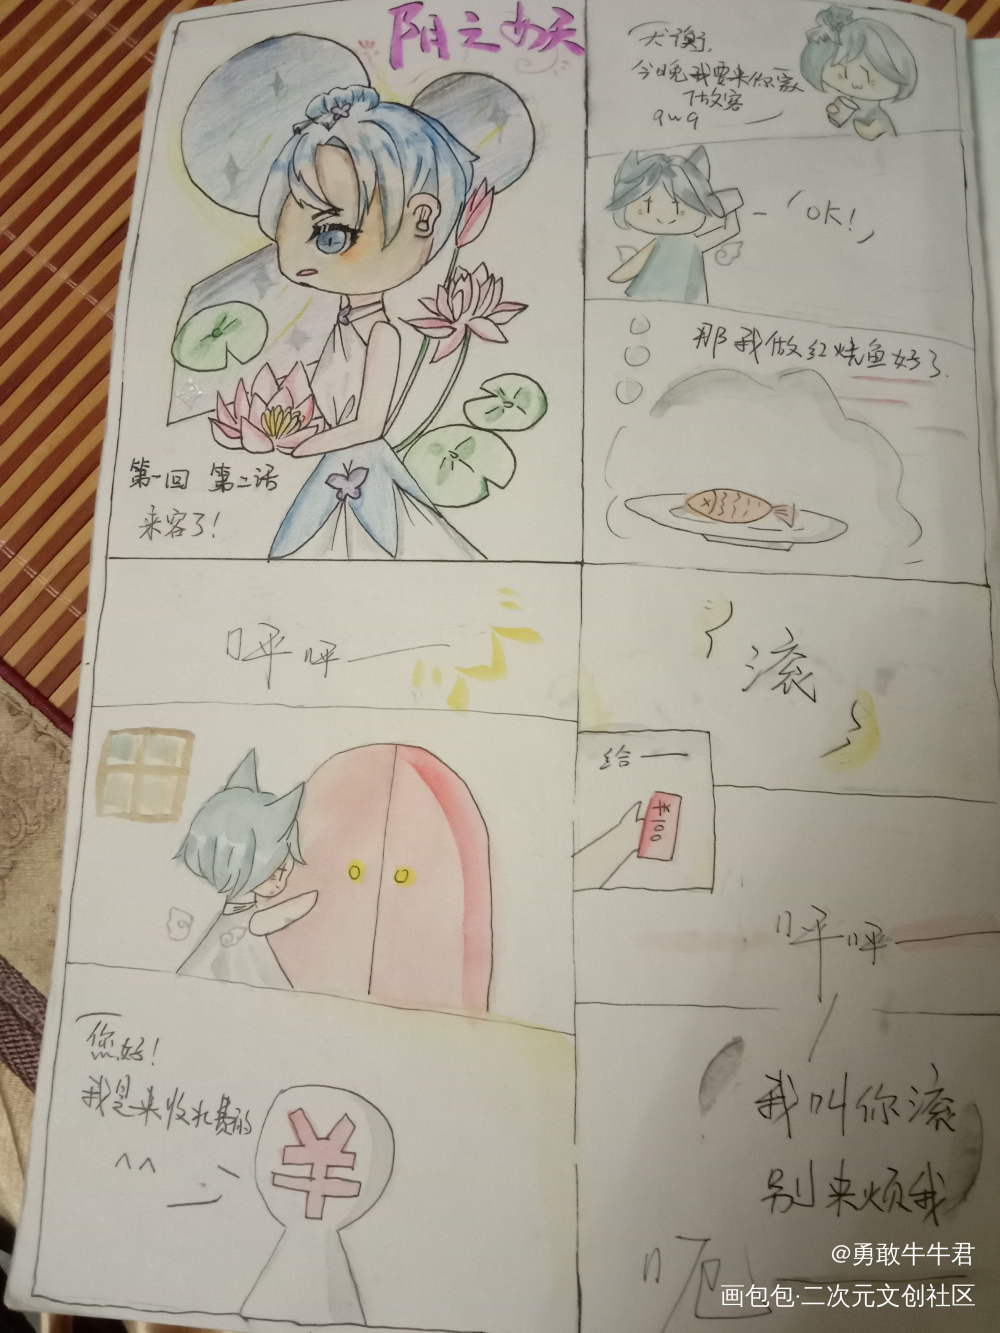 阴之妖
第一回 第二话
来客了!
犬谢,
今晚我要来你家
做客
qwq
“OK!”
那我做红烧鱼好了.
呯呯——
您好!
我是来收水费的
^^
¥
滚
给——
¥100
呯呯——
我叫你滚
别来烦我
呃——
@勇敢牛牛君
画包包·二次元文创社区